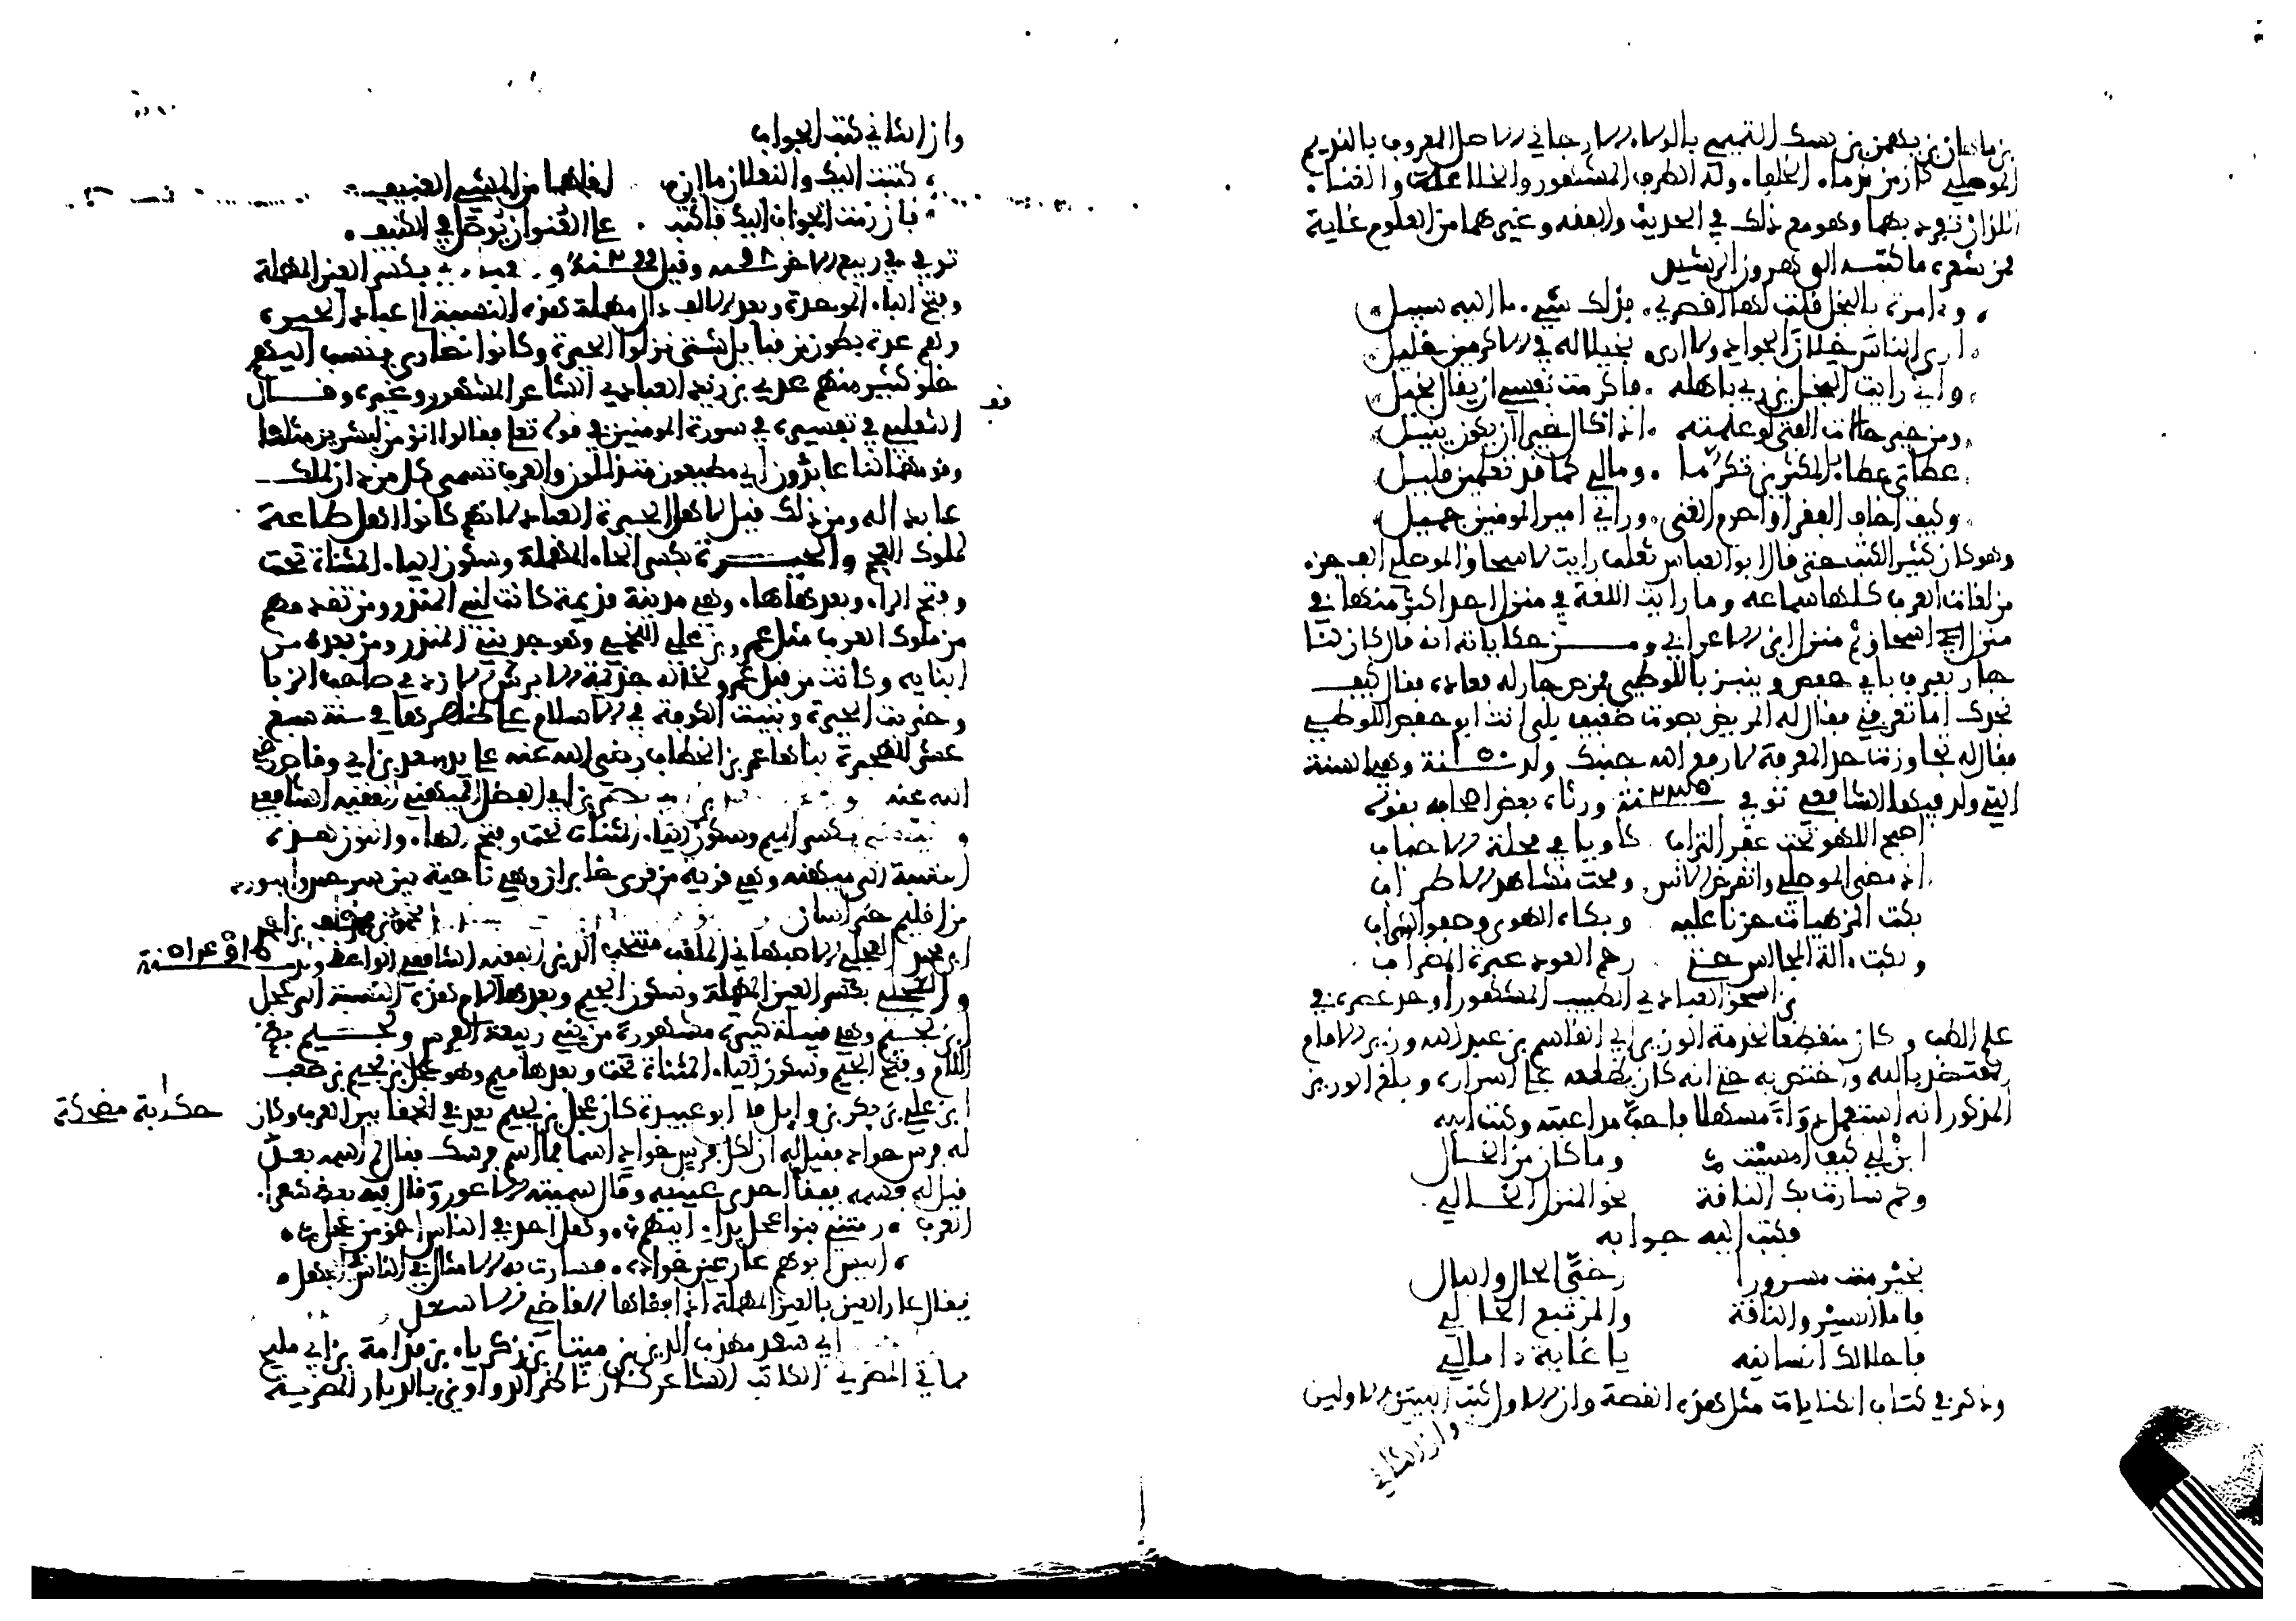 بن ماهان بن بهمن بن نسك التميمي بالولاء الارجاني الاصل المعروف بالنديم
الموصلي كان من ندماء الخلفاء وله الظرف المشهور والخلاعة والغناء
اللذان تفرد بهما وهو مع ذلك في الحديث والفقه وغيرهما من العلوم غاية
فمن شعره ما كتبه الى هرون الرشيد
وءامرة بالبخل قلت لها اقصري فذلك شيء ما اليه سبيل
ارى الناس خلان الجواد ولا ارى بخيلا له في الاكرمين خليل
واني رايت البخل يزري باهله فاكرمت نفسي ان يقال بخيل
ومن خير حالات الفتى لو علمته اذا نال خيرا ان يكون ينيل
عطائي عطاء المكثرين تكرما ومالي كما قد تعلمين قليل
وكيف اخاف الفقر او احرم الغنى وراي امير المومنين جميل
وهو كان كثير الكتب حتى قال ابو العباس ثعلب رايت لاسحاق الموصلي الف جزء
من لغات العرب كلها سماعه وما رايت اللغة في منزل احد اكثر منها في
منزل اسحاق ثم منزل ابن الاعرابي ومن حكاياته انه قال كان لنا
جار يعرف بابي حفص وينبز باللوطي فمرض جار له فعاده فقال كيف
تجدك اما تعرفني فقال له المريض بصوت ضعيف بلى انت ابو حفص اللوطي
فقال له تجاوزت حد المعرفة لا رفع الله جنبك ولد سنة ١٥٠ وهي السنة
التي ولد فيها الشافعي توفي سنة ٢٣٥ ورثاه بعض اصحابه بقوله
اصبح اللهو تحت عفر التراب ثاويا في محلة الاحباب
اذ مضى الموصلي وانقرض الانس ومحت مشاهد الاطراب
بكت الملهيات حزنا عليه وبكاه الهوى وصفو الشراب
وبكت ءالة المجالس حتى رحم العود عبرة المضراب
بن اسحق العبادي الطبيب المشهور اوحد عصره في
علم الطب وكان منقطعا لخدمة الوزير ابي القاسم بن عبد الله وزير الامام
المعتضد بالله واختص به حتى انه كان يطلعه على اسراره وبلغ الوزير
المذكور انه استعمل دواء مسهلا فاحب مداعبته وكتب اليه
ابن لي كيف امسيت وما كان من الحال
وكم سارت بك الناقة نحو المنزل الخالي
فكتب اليه جوابه
بخير بت مسرورا رخي الحال والبال
فاما السير والناقة والمرتبع الخالي
فاجلالك انسانيه يا غاية ءامالي
وذكر في كتاب الكنايات مثل هذه القصة وان الاول كتب البيتين الاولين
وان الثاني
وان الثاني كتب الجواب
كتبت اليك والنعلان ما ان اقلهما من المشي العنيف
فان رمت الجواب الي فاكتب على العنوان يوصل في الكنيف
توفي في ربيع الاخر وقيل بكسر العين المهملة
وفتح الباء الموحدة وبعد الالف دال مهملة هذه النسبة الى عباد الحيرة
وهم عدة بطون من قبايل شتى نزلوا الحيرة وكانوا نصارى ينسب اليهم
خلق كثير منهم عدي بن زيد العبادي الشاعر المشهور وغيره وقال
الثعلبي في تفسيره في سورة المومنين في قوله تعالى فقالوا انؤمن لبشرين مثلنا
وقومهما لنا عابدون اي مطيعون متذللون والعرب تسمي كل من دان لملك
عابدا له ومن ذلك قيل لاهل الحيرة العباد لانهم كانوا اهل طاعة
لملوك العجم والحيرة بكسر الحاء المهملة وسكون الياء المثناة تحت
وفتح الراء وبعدها هاء وهي مدينة قديمة كانت لبني المنذر ومن تقدمهم
من ملوك العرب مثل عمرو بن عدي اللخمي وهو جد بني المنذر ومن بعده من
ابنايه وكانت من قبل عمرو لخاله جذيمة الابرش الازدي صاحب الزبا
وخربت الحيرة وبنيت الكوفة في الاسلام على ظهرها في سنة سبع
عشر للهجرة بناها عمر بن الخطاب رضي الله عنه على يد سعد بن ابي وقاص رضي
الله عنه ابي الفضل الميهني الفقيه الشافعي
بكسر الميم وسكون الياء المثناة تحت وفتح الهاء والنون هذه
النسبة الى ميهنه وهي قرية من قرى خابران وهي ناحية بين سرخس وابيورد
من اقليم خراسان
العجلي الاصبهاني الملقب منتخب الدين الفقيه الشافعي الواعظ ولد
والعجلي بكسر العين المهملة وسكون الجيم وبعدها لام هذه النسبة الى عجل
ابن لجيم وهي قبيلة كبيرة مشهورة من بني ربيعة الفرس ولجيم بضم
اللام وفتح الجيم وسكون الياء المثناة تحت وبعدها ميم وهو عجل بن لجيم بن صعب
ابن علي بن بكر بن وايل قال ابو عبيدة كان عجل بن لجيم يعد في الحمقا بين العرب وكان
حكاية مضحكة
له فرس جواد فقيل له ان لكل فرس جواد اسما فما اسم فرسك فقال لم اسمه بعد
فقيل له فسمه ففقأ احدى عينيه وقال سميته الاعور وقال فيه بعض شعراء
العرب رمتني بنو عجل بداء ابيهم وهل احد في الناس احمق من عجل
اليس ابوهم عار عين جواده فسارت به الامثال في الناس بالجهل
فيقال عار العين بالعين المهملة اذا فقاها القاضي الاسعد
ابي سعد مهذب الدين بن مينا بن زكرياء بن قدامة بن ابي مليح
مماتي المصري الكاتب الشاعر كان ناظر الدواوين بالديار المصرية